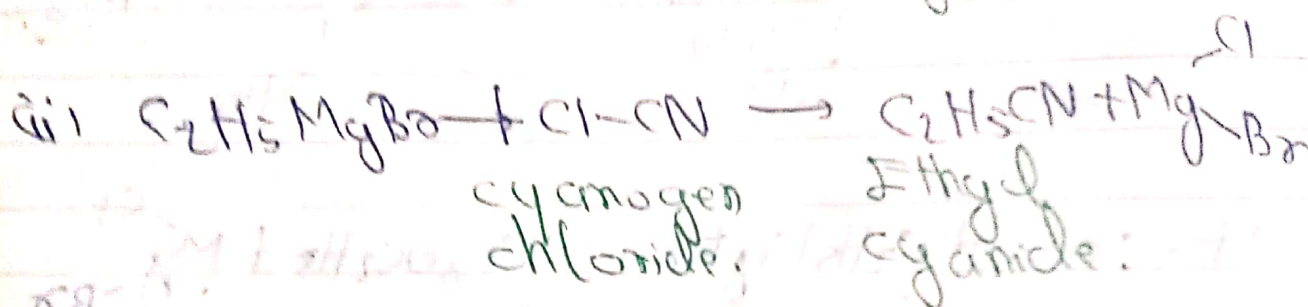 iii) C2H5MgBr + Cl-CN → C2H5CN + Mg
Cl
Br
cyanogen chloride.
Ethyl cyanide.